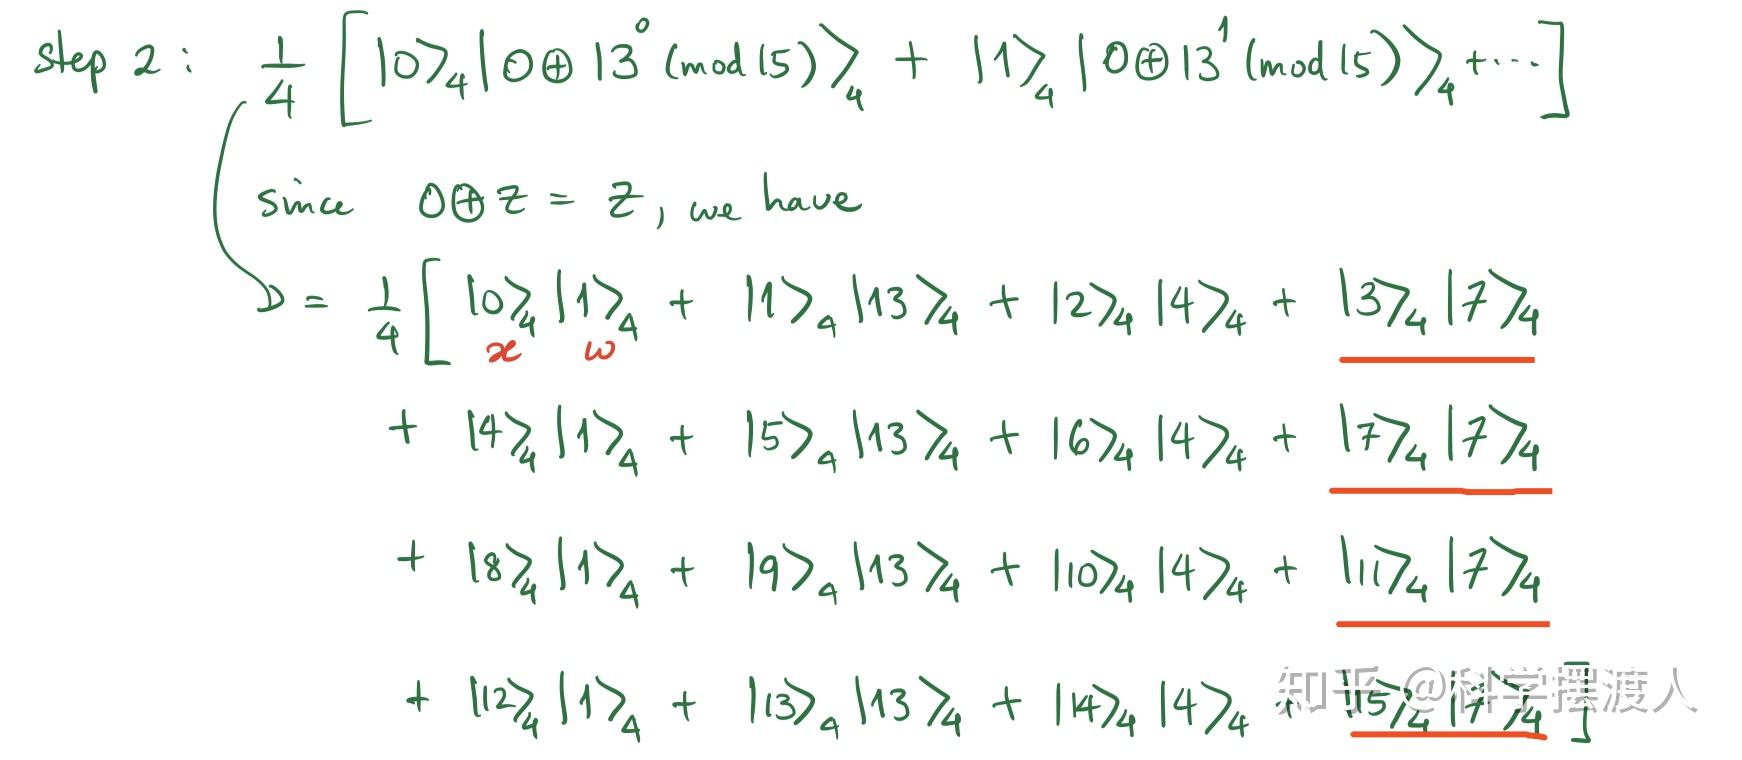 step 2: 1/4 [ |0⟩₄ |0⊕13⁰ (mod 15)⟩₄ + |1⟩₄ |0⊕13¹ (mod 15)⟩₄ + ··· ]
since 0⊕z = z, we have
= 1/4 [ |0⟩₄ |1⟩₄ + |1⟩₄ |13⟩₄ + |2⟩₄ |4⟩₄ + |3⟩₄ |7⟩₄
x w
+ |4⟩₄ |1⟩₄ + |5⟩₄ |13⟩₄ + |6⟩₄ |4⟩₄ + |7⟩₄ |7⟩₄
+ |8⟩₄ |1⟩₄ + |9⟩₄ |13⟩₄ + |10⟩₄ |4⟩₄ + |11⟩₄ |7⟩₄
+ |12⟩₄ |1⟩₄ + |13⟩₄ |13⟩₄ + |14⟩₄ |4⟩₄ + |15⟩₄ |7⟩₄ ]
知乎 @科学摆渡人